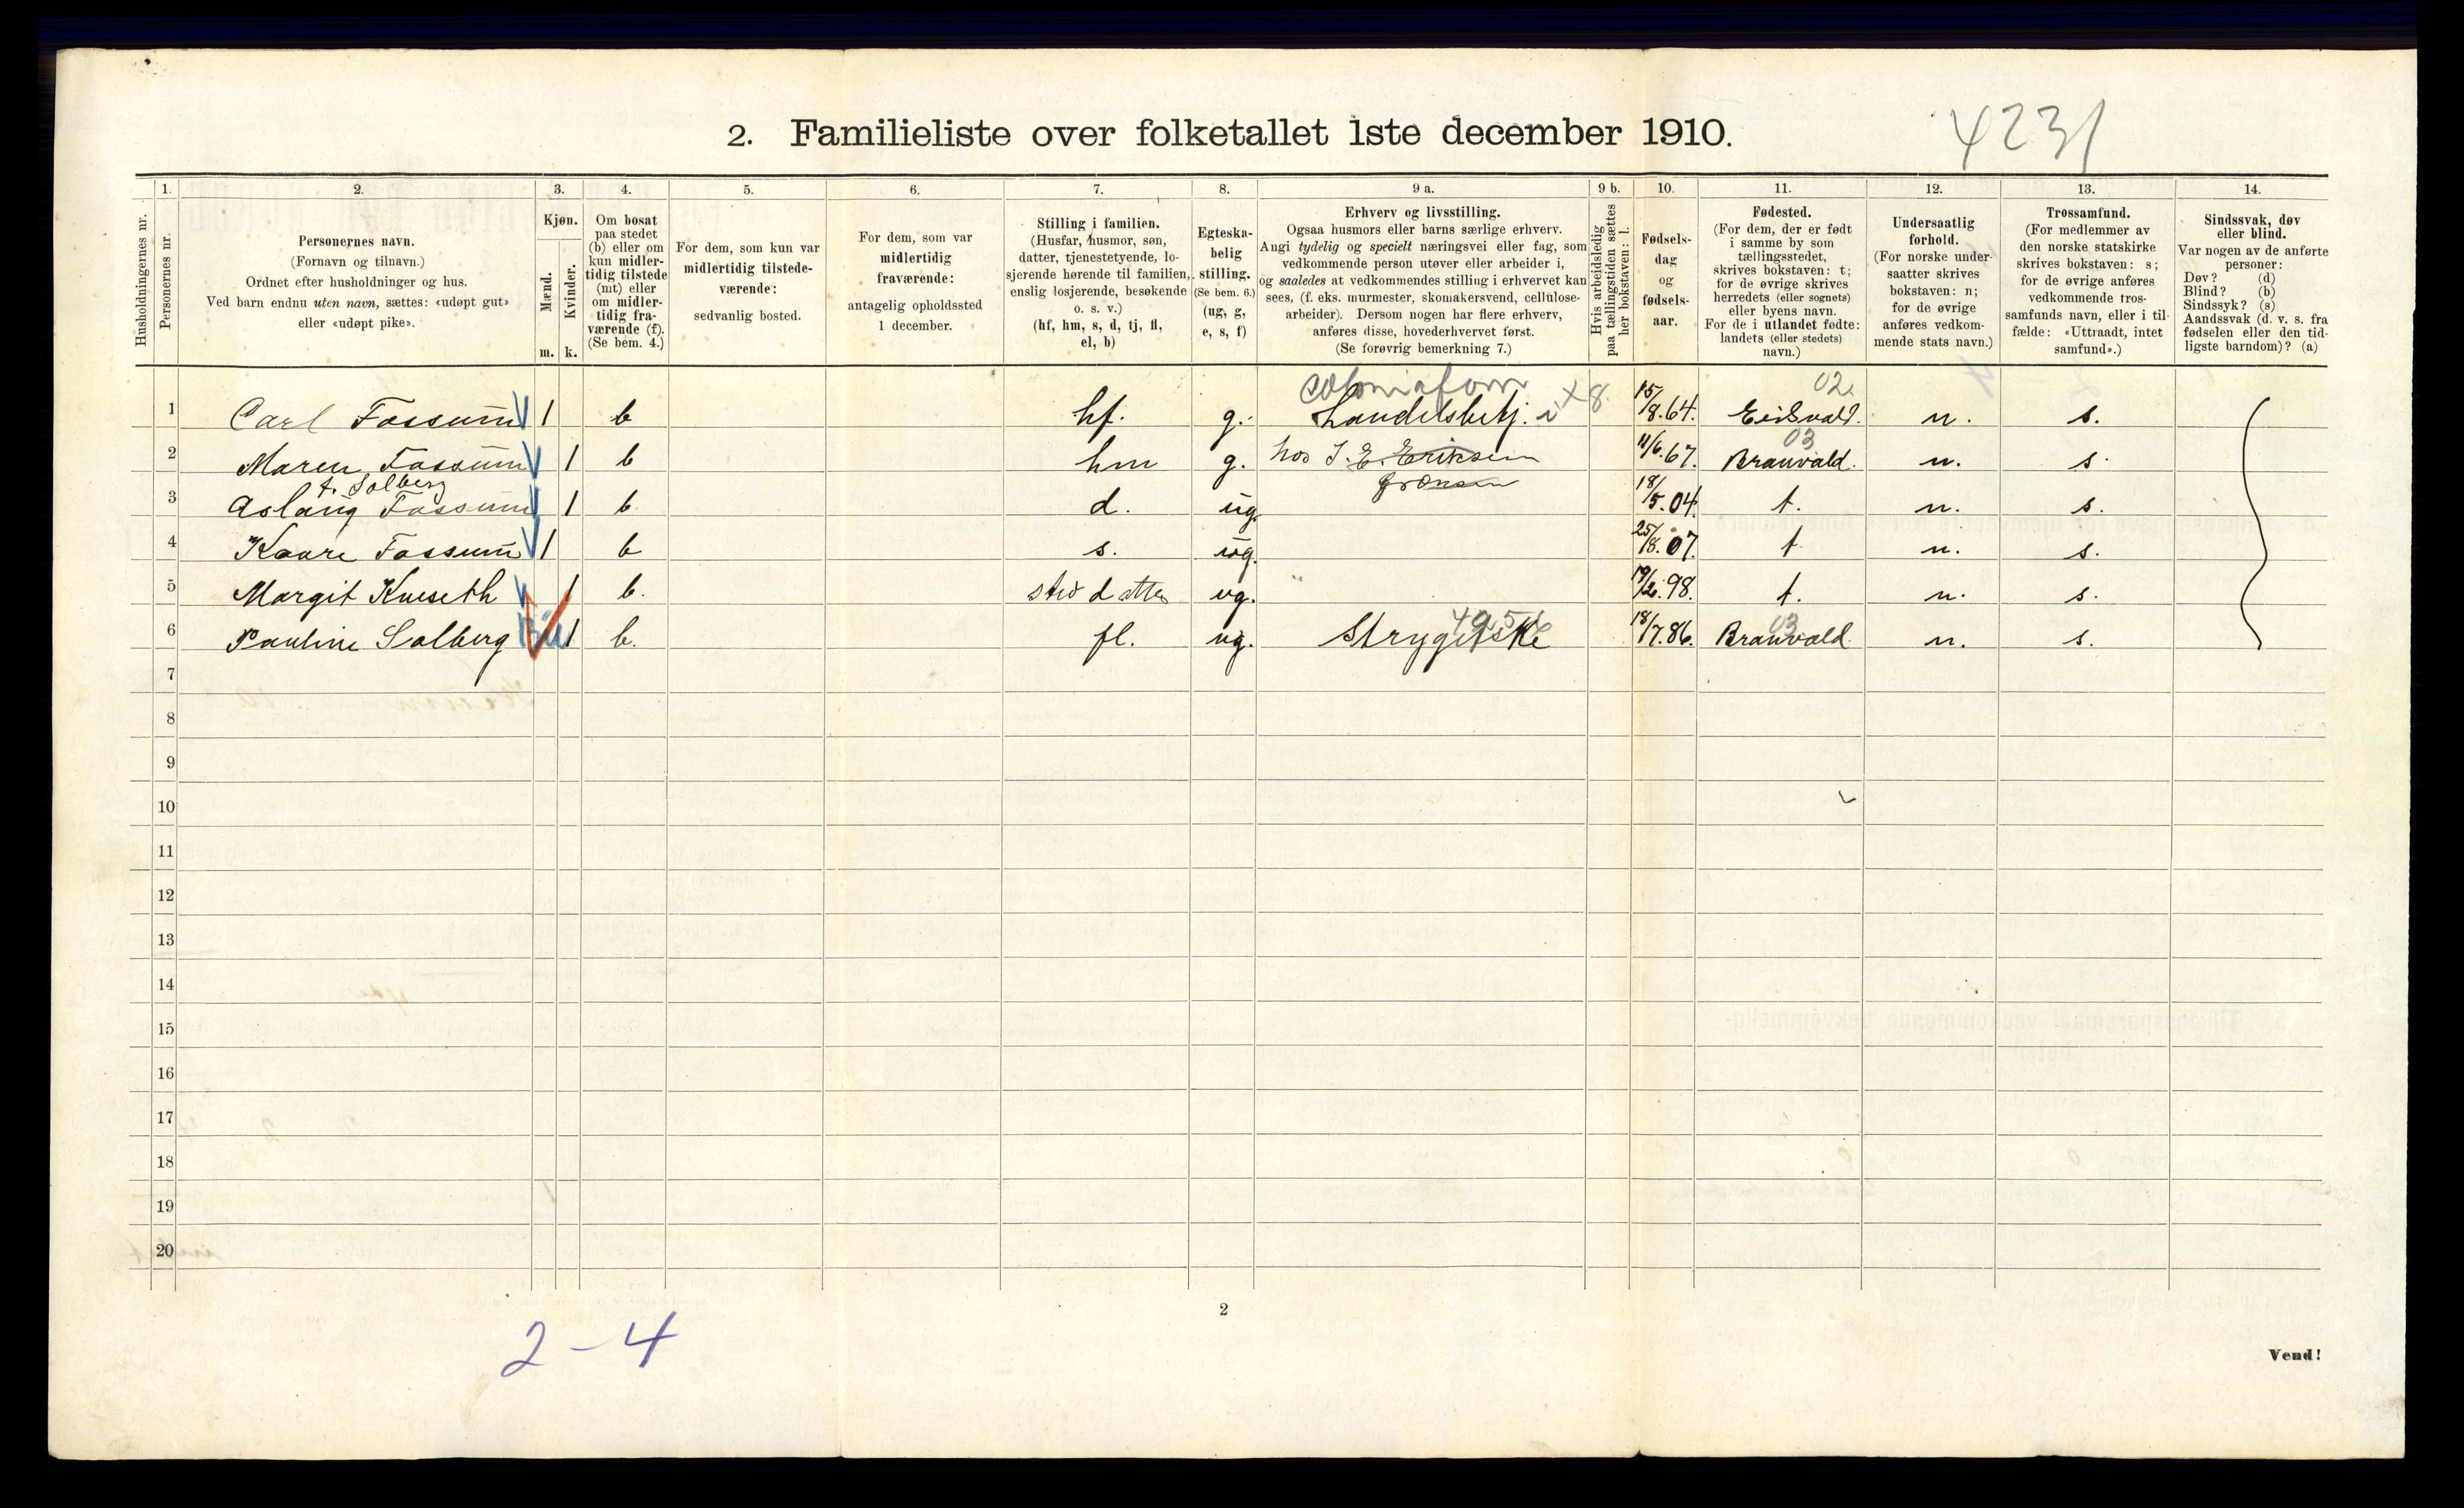 2. Familieliste over folketallet 1ste december 1910.
4231
1. 2. 3. 4. 5. 6. 7. 8. 9 a. 9 b. 10. 11. 12. 13. 14.
Husholdningernes nr.
Personernes nr.
Personernes navn.
(Fornavn og tilnavn.)
Ordnet efter husholdninger og hus.
Ved barn endnu uten navn, sættes: «udøpt gut»
eller «udøpt pike».
Kjøn.
Mænd.
Kvinder.
m. k.
Om bosat
paa stedet
(b) eller om
kun midler-
tidig tilstede
(mt) eller
om midler-
tidig fra-
værende (f).
(Se bem. 4.)
For dem, som kun var
midlertidig tilstede-
værende:
sedvanlig bosted.
For dem, som var
midlertidig
fraværende:
antagelig opholdssted
1 december.
Stilling i familien.
(Husfar, husmor, søn,
datter, tjenestetyende, lo-
sjerende hørende til familien,
enslig losjerende, besøkende
o. s. v.)
(hf, hm, s, d, tj, fl,
el, b)
Egteska-
belig
stilling.
(Se bem. 6.)
(ug, g,
e, s, f)
Erhverv og livsstilling.
Ogsaa husmors eller barns særlige erhverv.
Angi tydelig og specielt næringsvei eller fag, som
vedkommende person utøver eller arbeider i,
og saaledes at vedkommendes stilling i erhvervet kan
sees, (f. eks. murmester, skomakersvend, cellulose-
arbeider). Dersom nogen har flere erhverv,
anføres disse, hovederhvervet først.
(Se forøvrig bemerkning 7.)
Hvis arbeidsledig
paa tællingstiden sættes
her bokstaven: l.
Fødsels-
dag
og
fødsels-
aar.
Fødested.
(For dem, der er født
i samme by som
tællingsstedet,
skrives bokstaven: t;
for de øvrige skrives
herredets (eller sognets)
eller byens navn.
For de i utlandet fødte:
landets (eller stedets)
navn.)
Undersaatlig
forhold.
(For norske under-
saatter skrives
bokstaven: n;
for de øvrige
anføres vedkom-
mende stats navn.)
Trossamfund.
(For medlemmer av
den norske statskirke
skrives bokstaven: s;
for de øvrige anføres
vedkommende tros-
samfunds navn, eller i til-
fælde: «Uttraadt, intet
samfund».)
Sindssvak, døv
eller blind.
Var nogen av de anførte
personer:
Døv? (d)
Blind? (b)
Sindssyk? (s)
Aandssvak (d. v. s. fra
fødselen eller den tid-
ligste barndom)? (a)
8. 02.
1 Carl Fossum 1 b hf. g. Handelsbetj. i 15/8.64. Eidsvold. n. s.
03
2 Maren Fossum 1 b hm g. hos J. E. Eriksen 11/6.67. Branvald. n. s.
f. Solberg Grønsen
3 Aslaug Fossum 1 b d. ug. 18/5.04. t. n. s.
4 Kaare Fossum 1 b s. ug. 25/8.07. t n. s.
5 Margit Kneseth 1 b. sted datter ug. 19/2.98. t. n. s.
03
6 Pauline Solberg 1 b. fl. ug. Strygerske 18/7.86. Branvold n. s.
7
8
9
10
11
12
13
14
15
16
17
18
19
20
2
2-4
Vend!